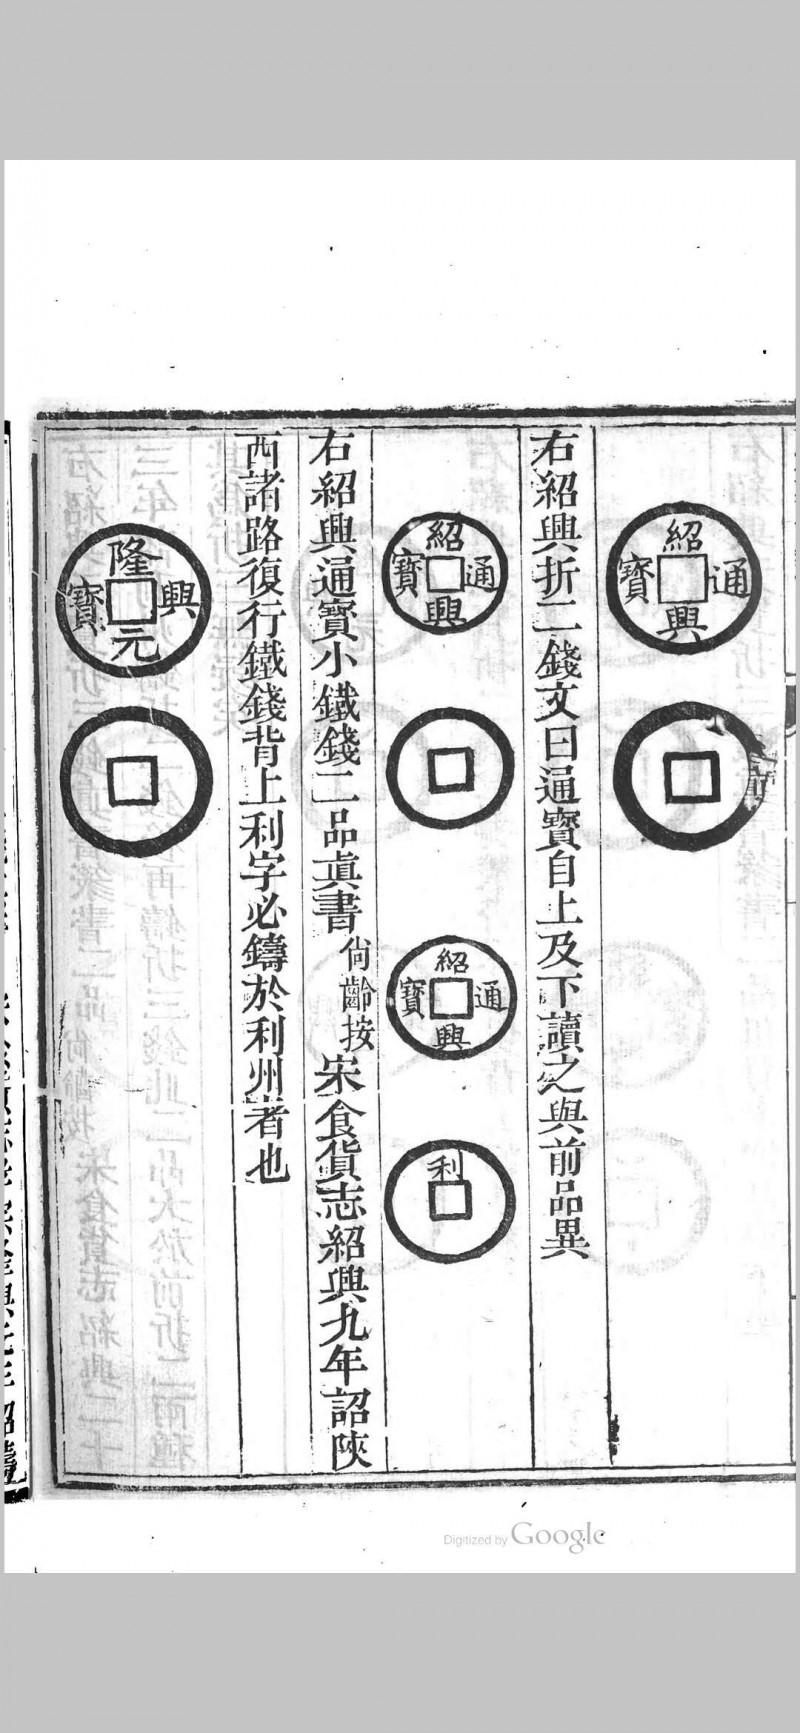 紹興通寶
右紹興折二錢文曰通寶自上及下讀之與前品異
紹興通寶
紹興通寶
利
右紹興通寶小鐵錢二品眞書尙齡按宋食貨志紹興九年詔陝
西諸路復行鐵錢背上利字必鑄於利州者也
隆興元寶
Digitized by Google